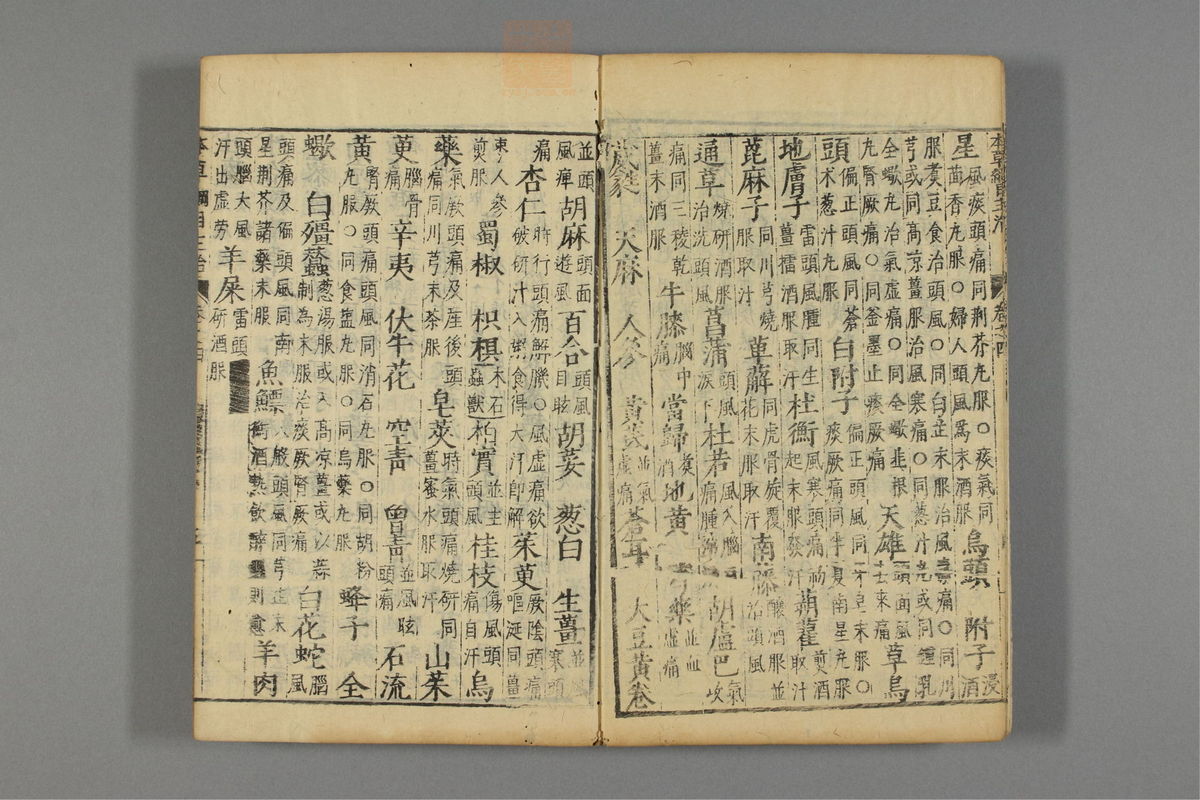 本草綱目主治 卷之四
星風痰頭痛同荊芥丸服○痰氣同茴香丸服○婦人頭風為末酒服烏頭 附子浸酒
服煑豆食治頭風○同白芷末服治風毒痛○同川芎或同高凉薑服治風寒痛○同葱汁丸或同鍾乳
全蝎丸治氣虛痛○同全蝎韭根丸腎厥痛○同釜墨止痰厥痛天雄頭面風去來痛草烏
頭偏正頭風同蒼术葱汁丸服白附子偏正頭風同牙皂末服○痰厥痛同半夏南星丸服
地膚子雷頭風腫同生薑擂酒服取汗杜衡風寒頭痛初起末服發汗蒴藋煎酒取汁
蓖麻子同川芎燒服取汁萆薢同虎骨旋覆花末服取汗南藤釀酒服並治頭風
通草燒研酒服治洗頭風菖蒲頭風淚下杜若風入腦痛腫胡盧巴氣攻
痛同三稜乾薑末酒服牛膝腦中痛當歸煑酒地黃 芍藥並血虛痛
葳蕤 天麻 人參 黃芪並氣虛痛蒼耳 大豆黃卷
並頭風痺胡麻頭面遊風百合頭風目眩胡荽 葱白 生薑並風寒頭
痛杏仁時行頭痛解肌○風虛痛欲破研汁入粥食得大汗即解茱萸厥陰頭痛嘔涎同薑
棗人參煎服蜀椒 枳椇木石蟲獸柏實並主頭風桂枝傷風頭痛自汗烏
藥氣厥頭痛及產後頭痛同川芎末茶服皂莢時氣頭痛燒研同薑蜜水服取汗山茱
萸腦骨痛辛夷 伏牛花 空青 曾青並風眩頭痛石流
黃腎厥頭痛頭風同消石丸服○同胡粉丸服○同食鹽丸服○同烏藥丸服蜂子 全
蠍 白殭蠶葱湯服或入高凉薑或以蒜制為末服治痰厥腎厥痛白花蛇腦風
頭痛及偏頭風同南星荊芥諸藥末服魚鰾八般頭風同芎芷末衝酒熱飲醉醒則愈羊肉
頭腦大風汗出虛勞羊屎雷頭風研酒服
本草綱目主治 卷之四